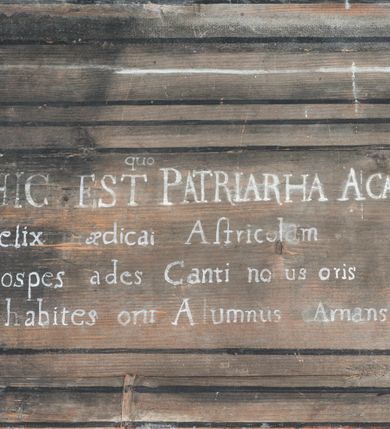 quo
HIC EST PATRIARHA ACA
elix ædicai Aſtricolam
ospes ades Canti no us oris
habites orti Alumnus Amans